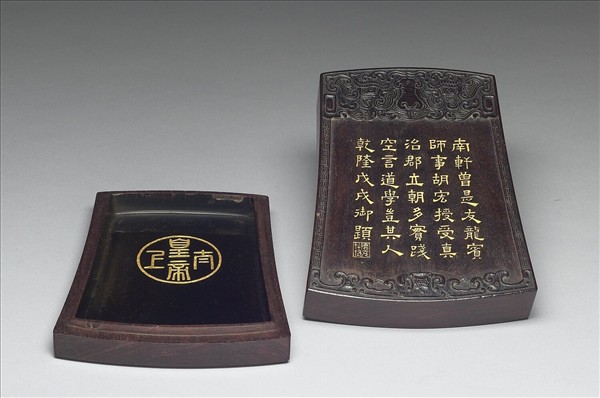 南軒曾是友龍賓
師事胡宏授受真
治郡立朝多實踐
空言道學豈其人
乾隆戊戌御題
太上皇帝